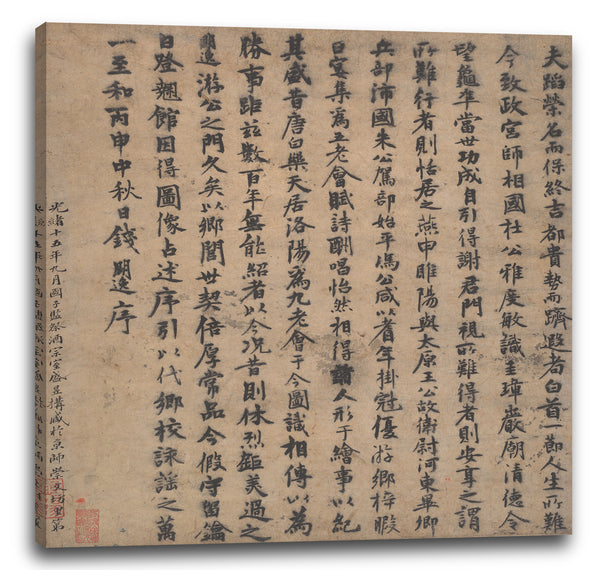 夫蹈榮名而保終吉都貴勢而躋遐耇白首一節人生所難
今致政宮師相國杜公雅度敏識圭璋巖廟清德令
望龜準當世功成自引得謝君門視所難得者則安享之謂
所難行者則恬居之燕申睢陽與太原王公故衛尉河東畢卿
兵部沛國朱公駕部始平馮公咸以耆年掛冠優游鄉梓暇
日宴集為五老會賦詩酬唱怡然相得諸人形于繪事以紀
其盛昔唐白樂天居洛陽為九老會于今圖識相傳以為
勝事距茲數百年無能紹者以今況昔則休烈鉅美過之
明逸游公之門久矣以鄉閭世契倍厚常品今假守留鑰
日登翹館因得圖像占述序引以代鄉校詠謠之萬
一至和丙申中秋日錢明逸序
光緒十五年九月國子監祭酒宗室盛昱構藏於京師